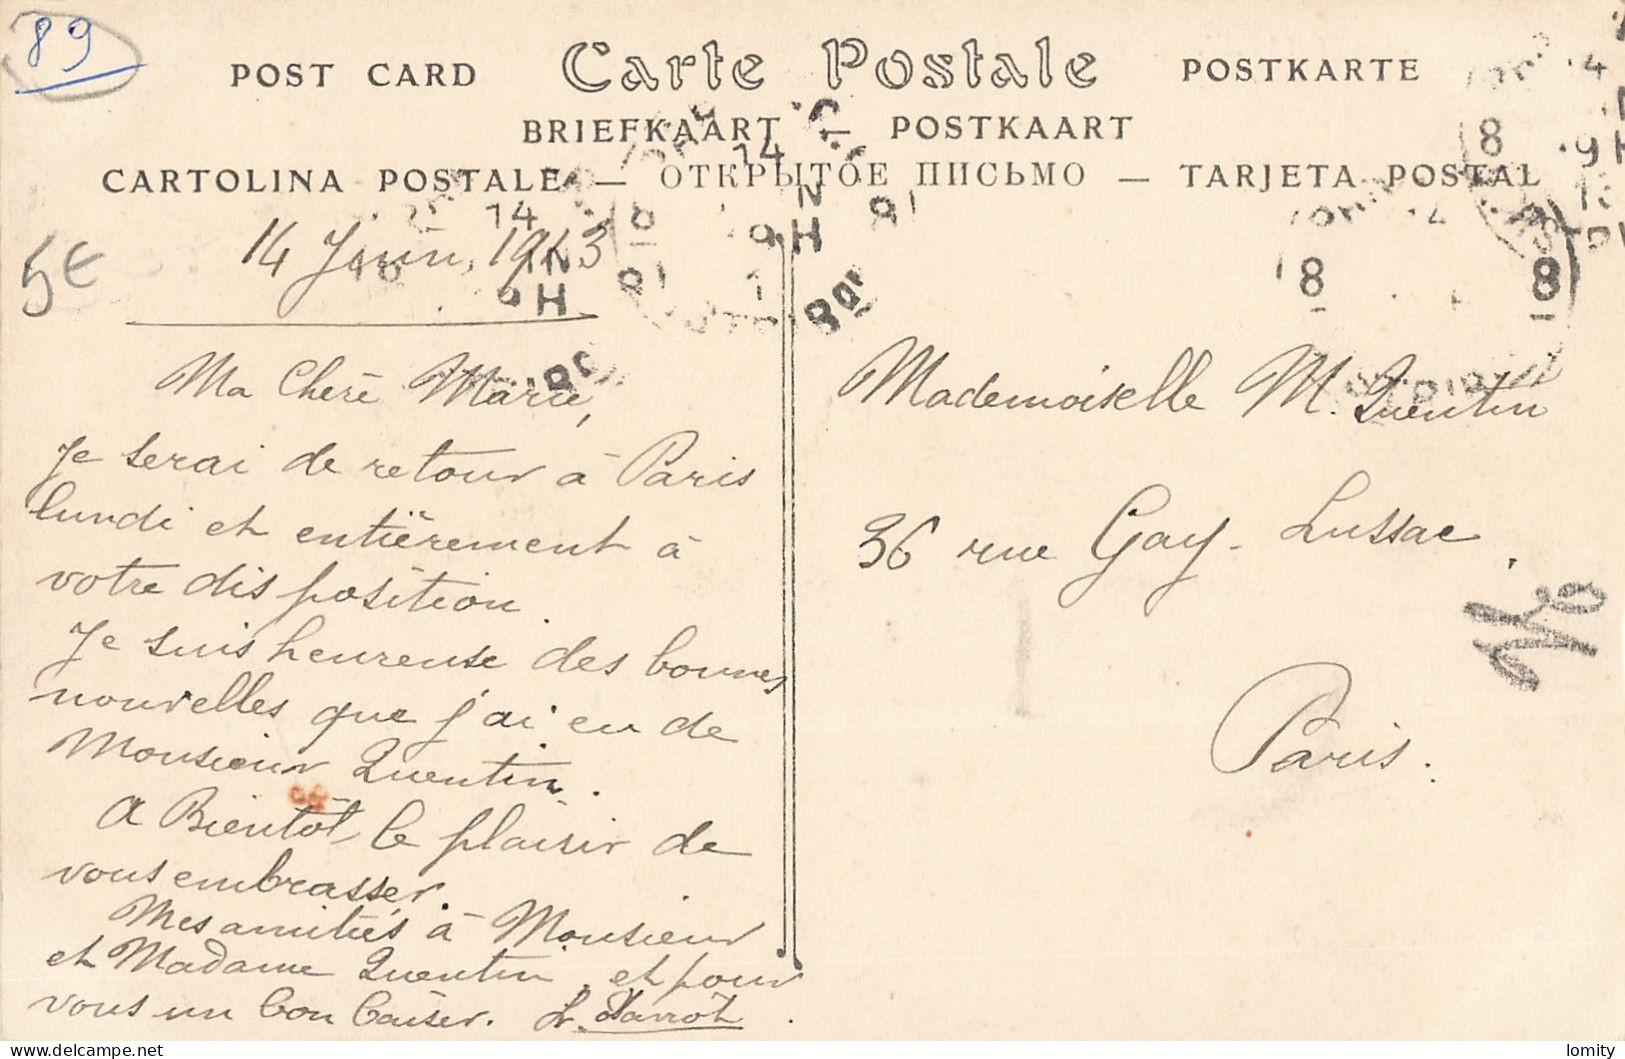 89
POST CARD Carte Postale POSTKARTE
BRIEFKAART — POSTKAART
CARTOLINA POSTALE — ОТКРЫТОЕ ПИСЬМО — TARJETA POSTAL
5€
14 Juin, 1913
Ma Chère Marie,
Je serai de retour à Paris
lundi et entièrement à
votre disposition.
Je suis heureuse des bonnes
nouvelles que j'ai eu de
Monsieur Quentin.
A Bientôt le plaisir de
vous embrasser.
Mes amitiés à Monsieur
et Madame Quentin, et pour
vous un bon baiser.
Mademoiselle M. Quentin
36 rue Gay-Lussac.
Paris.
delcampe.net
lomity